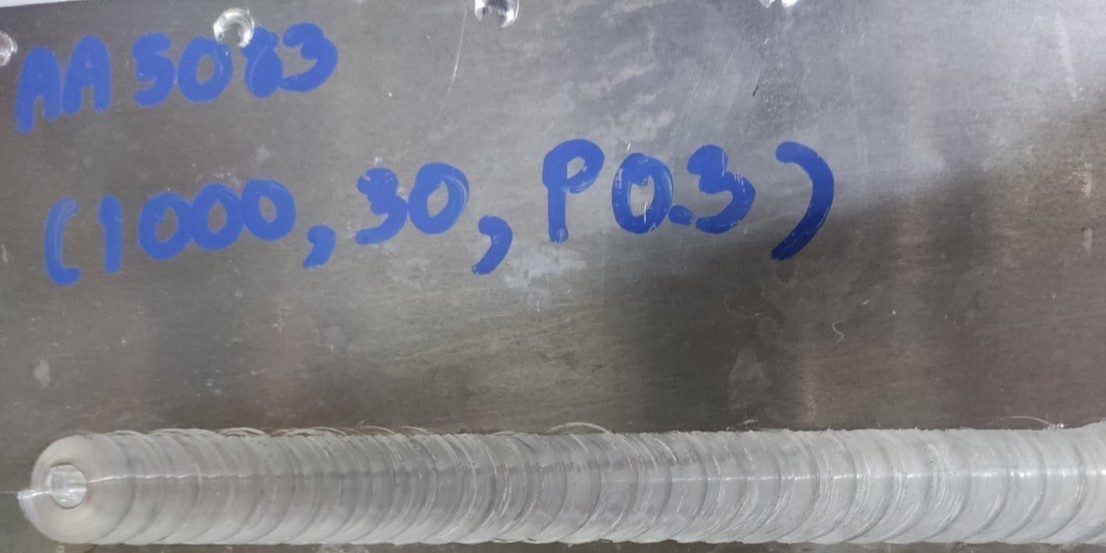 AA5083
(1000,30,P0.3)